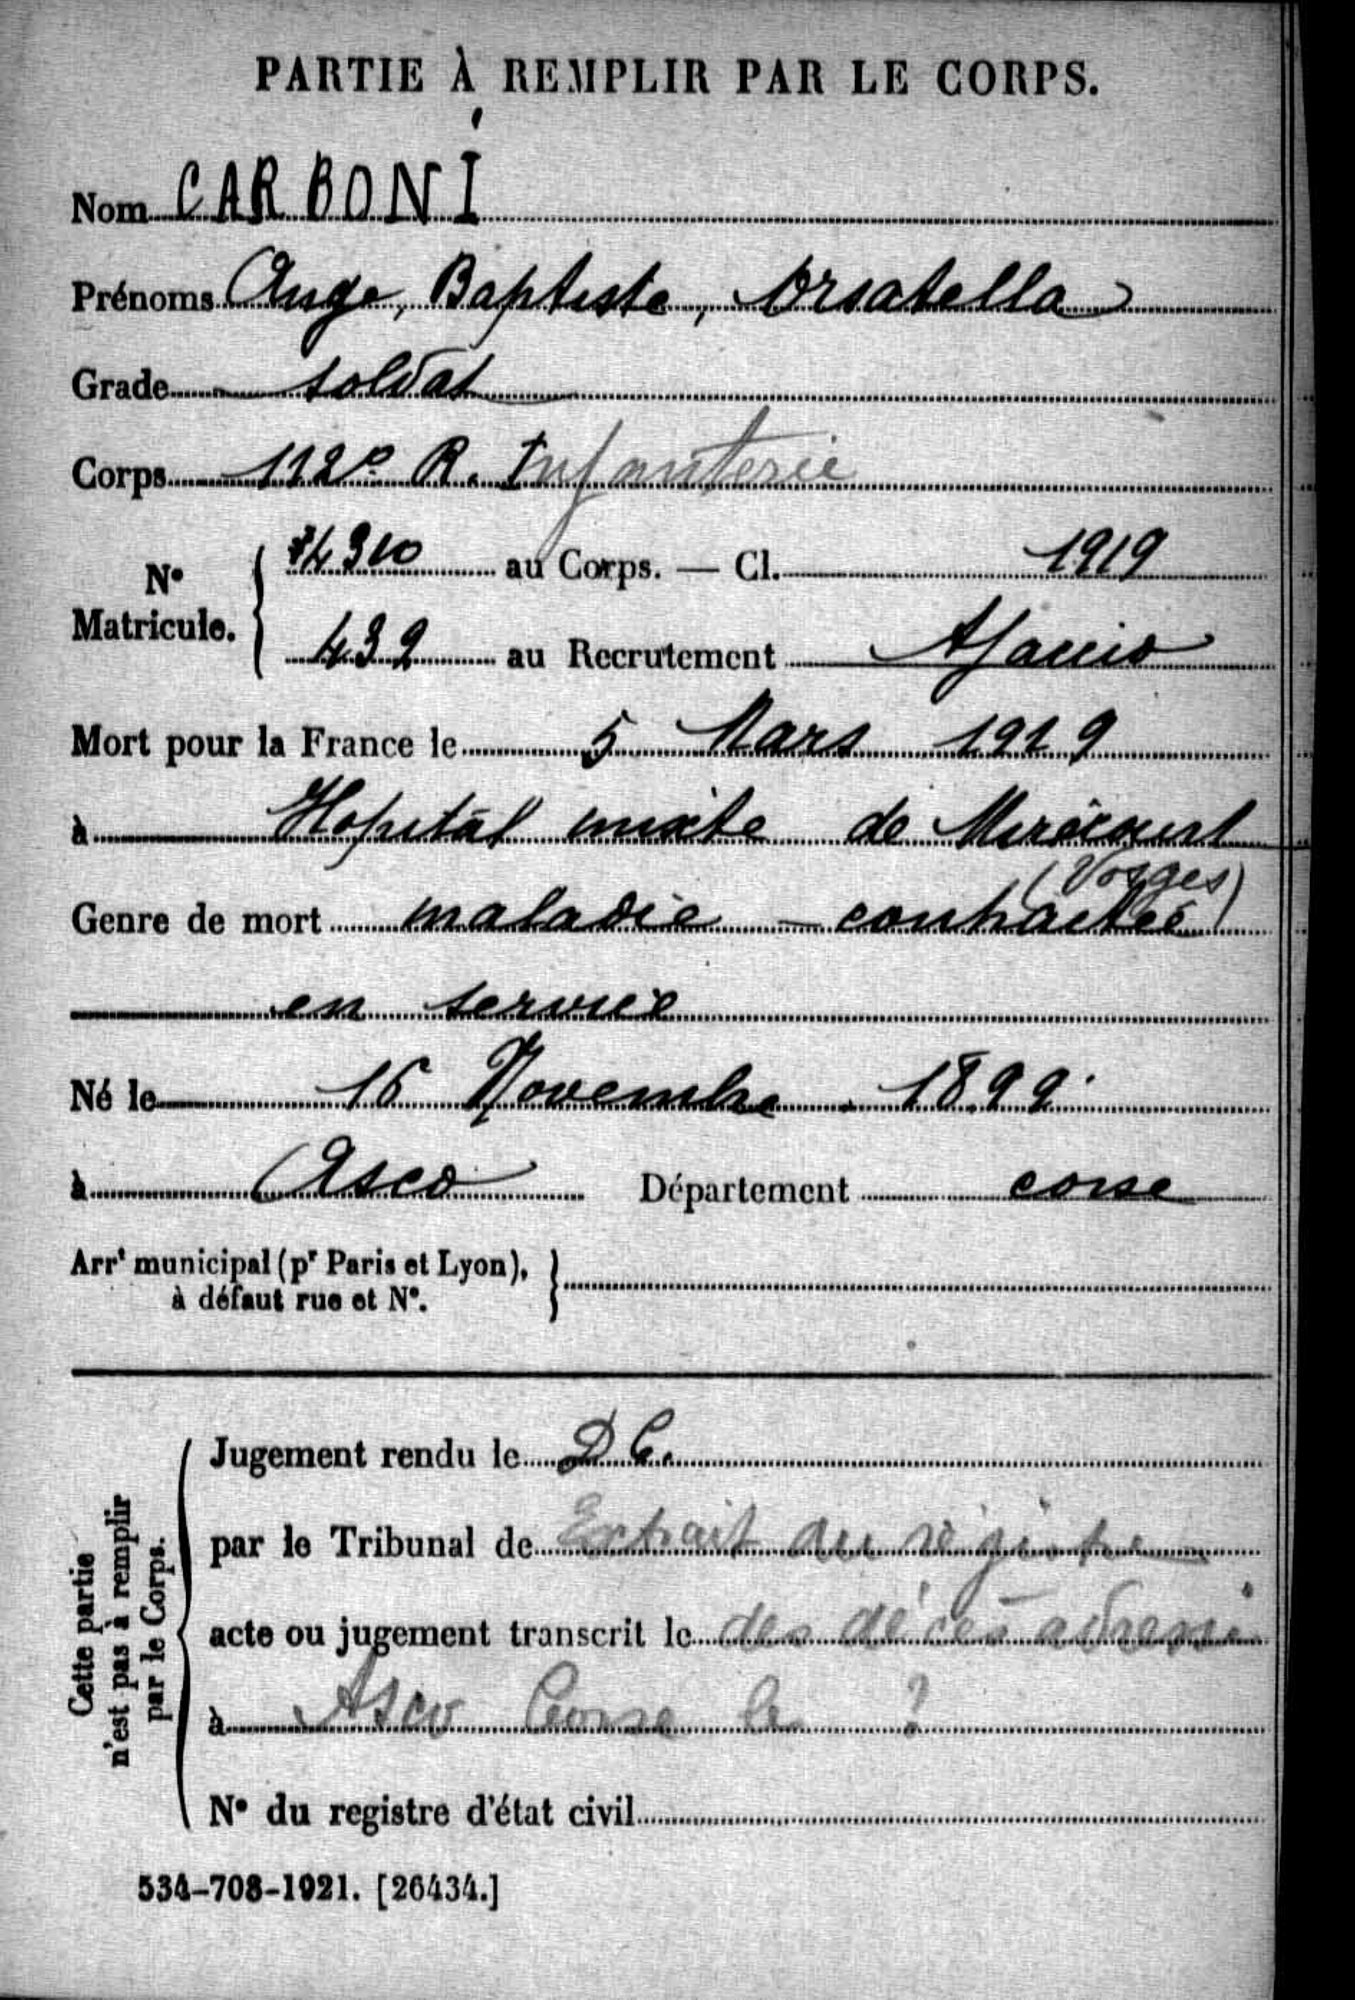 PARTIE À REMPLIR PAR LE CORPS.
Nom CARBONI
Prénoms Ange, Baptiste, Orsatella
Grade soldat
Corps 112e R. Infanterie
N° Matricule. { 14310 au Corps. — Cl. 1919
432 au Recrutement Ajaccio
Mort pour la France le 5 Mars 1919
à Hopital mixte de Mirecourt
(Vosges)
Genre de mort maladie contractée
en service
Né le 16 Novembre 1899
à Asco Département corse
Arrt municipal (pr Paris et Lyon), }
à défaut rue et N°.
Cette partie
n'est pas à remplir
par le Corps.
Jugement rendu le D C.
par le Tribunal de Extrait du registre
acte ou jugement transcrit le des décès adressé
à Asco Corse le ?
N° du registre d'état civil
534-708-1921. [26434.]